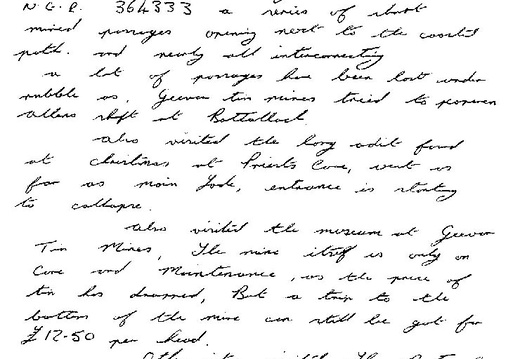 N.G.R. 364333 a series of short
mined passages opening next to the coastal
path. and nearly all interconnecting
a lot of passages have been lost under
rubble as, Geevor tin mines tried to
Allens shaft at Bottallack
also visited the long adit found
at Christmas at Priests Cove, went as
far as main lode, entrance is starting
to collapse.
Also visited the museum at Geevor
Tin Mines, The mine itself is only on
Care and Maintenance, as the price of
tin has dropped, But a trip to the
bottom of the mine can still be got for
£12-50 per head.